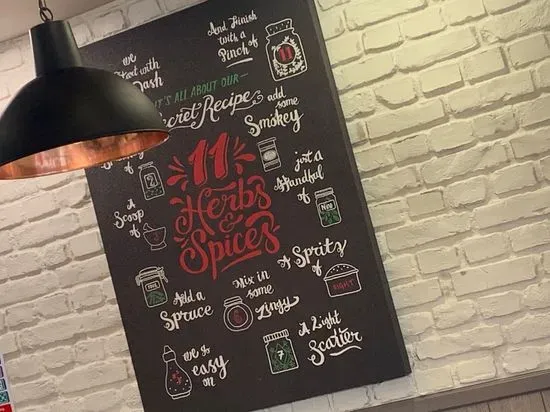 And Finish
with a
Pinch of
11
we
Start with
Dash
IT'S ALL ABOUT OUR
Secret Recipe
add
some
Smokey
11
Herbs
&
Spices
2
just a
Handful
of
Nine
A
Scoop
of
A Spritz
of
EIGHT
Add a
Spruce
Mix in
some
Zingy
6
we go
easy
on
7
A Light
Scatter